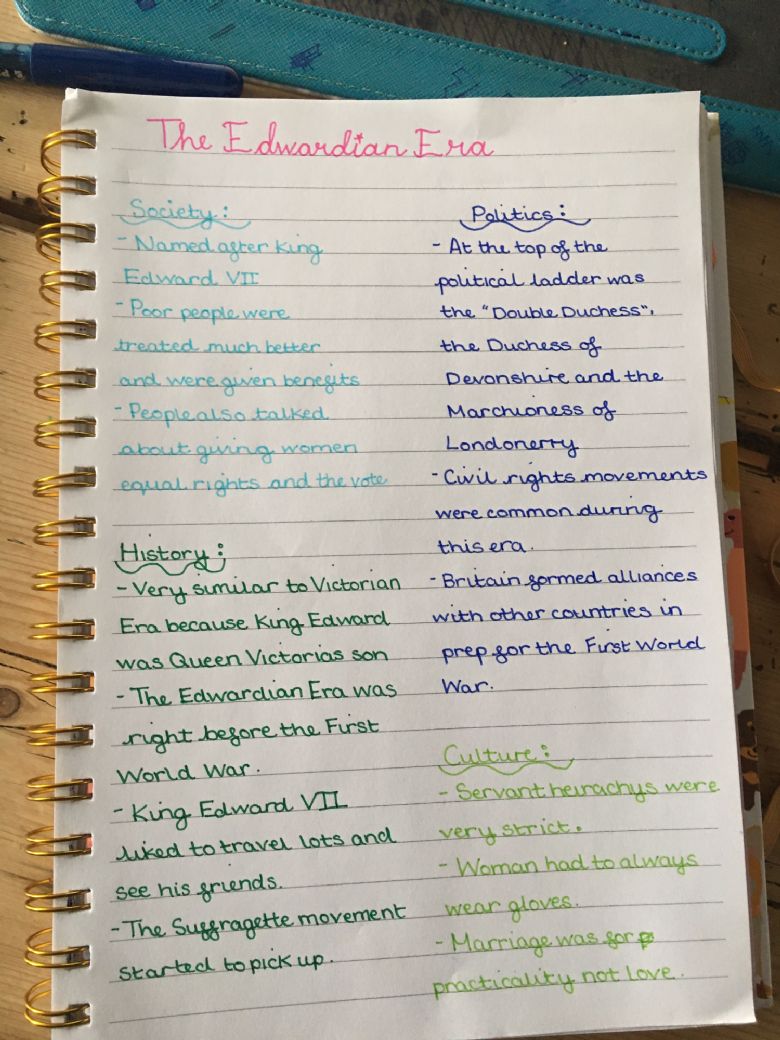 The Edwardian Era
Society:
- Named after King
Edward VII
- Poor people were
treated much better
and were given benefits
- People also talked
about giving women
equal rights and the vote
History:
- Very similar to Victorian
Era because King Edward
was Queen Victorias son
- The Edwardian Era was
right before the First
World War.
- King Edward VII
liked to travel lots and
see his friends.
- The Suffragette movement
started to pick up.
Politics:
- At the top of the
political ladder was
the "Double Duchess",
the Duchess of
Devonshire and the
Marchioness of
Londonerry
- Civil rights movements
were common during
this era.
- Britain formed alliances
with other countries in
prep for the First World
War.
Culture:
- Servant heirachys were
very strict.
- Woman had to always
wear gloves.
- Marriage was for
practicality not love.